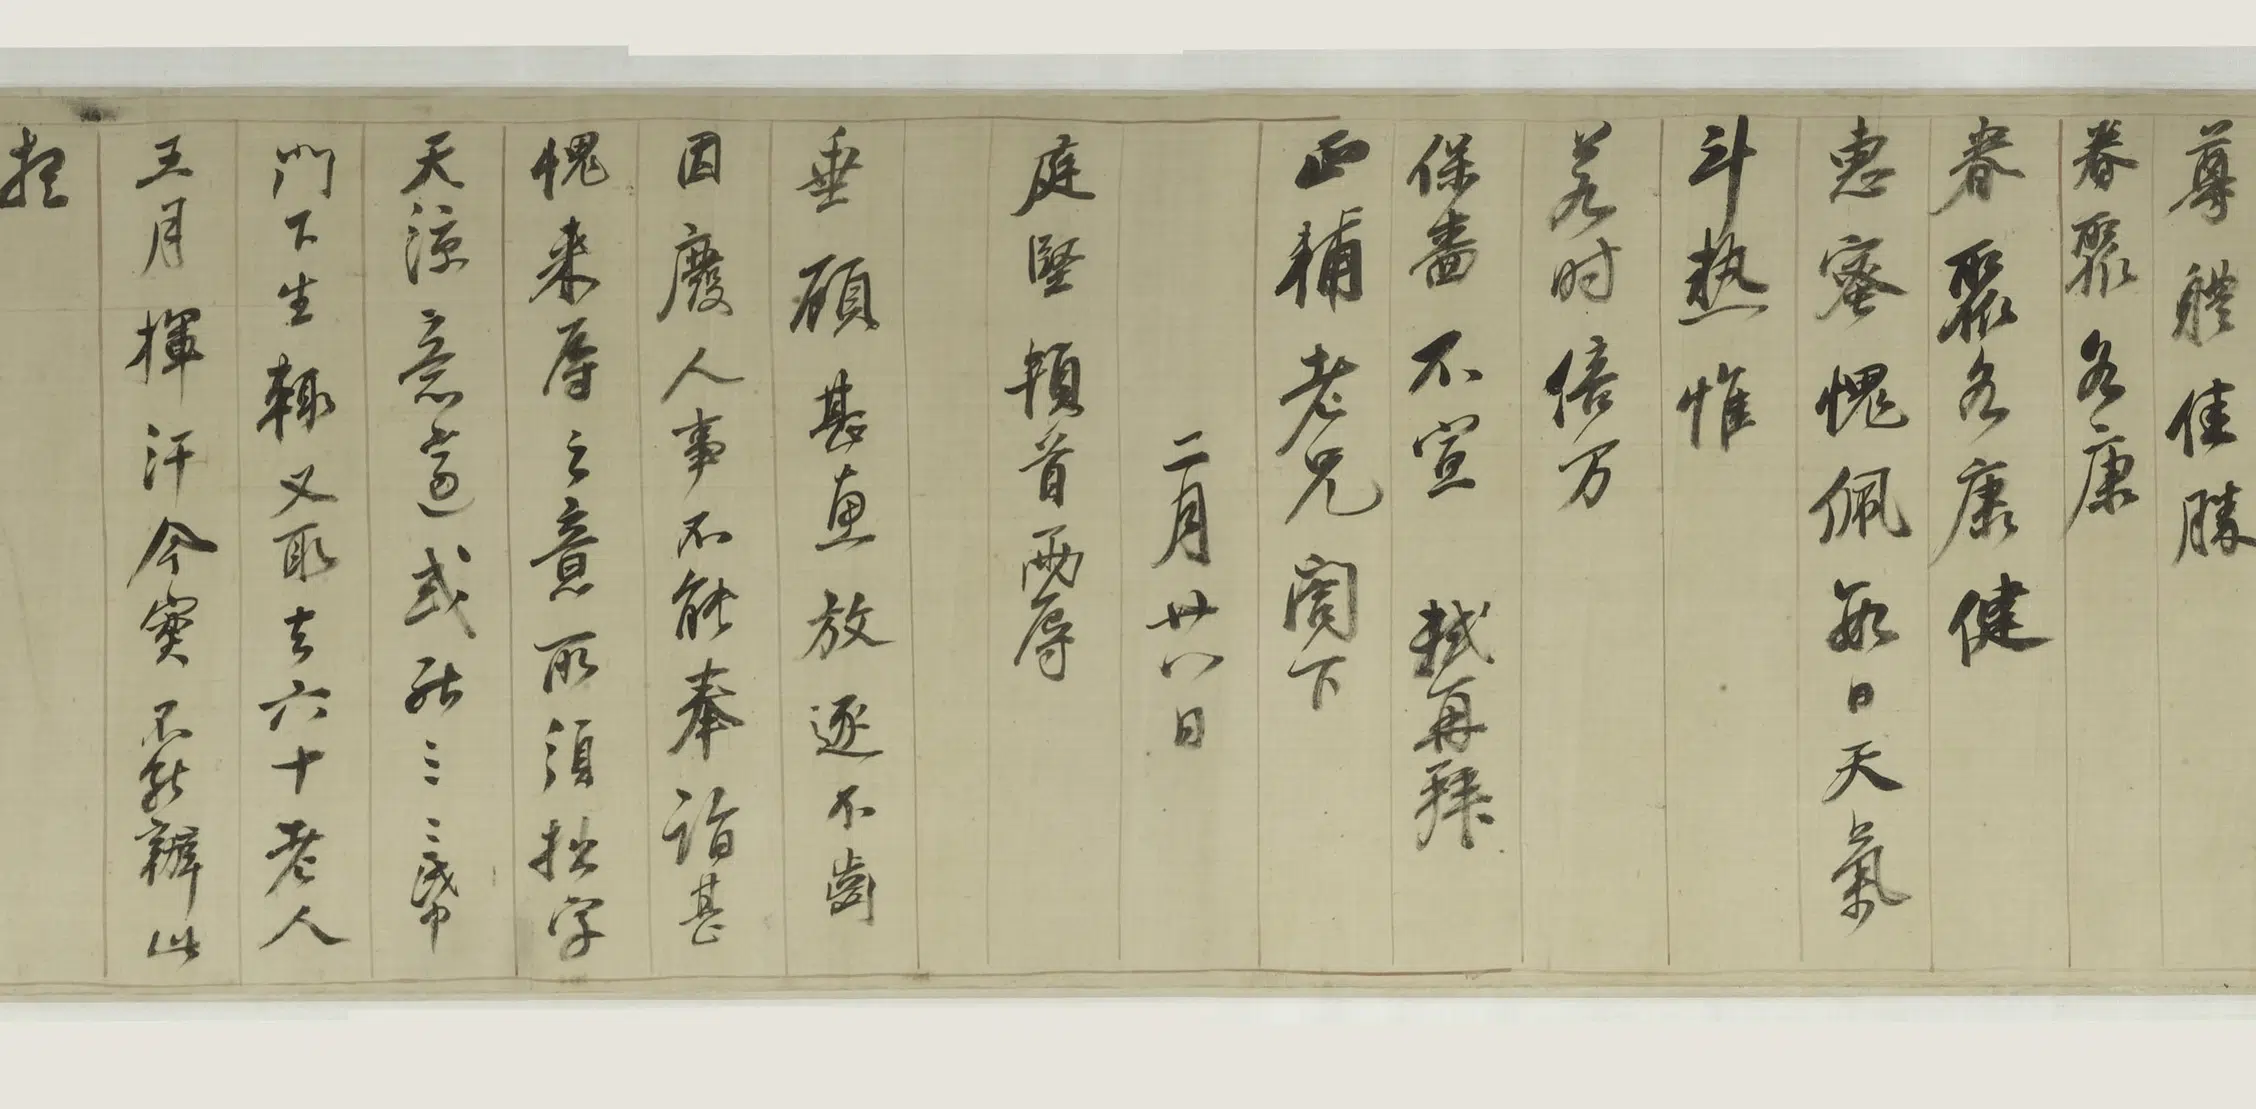 尊體佳勝
眷聚各康
眷聚各康健
惠蜜愧佩數日天氣
斗熱惟
若时倍万
保嗇不宣 軾再拜
正輔老兄閤下
二月廿八日
庭堅頓首兩辱
垂顧甚惠放逐不齒
因廢人事不能奉詣甚
愧来辱之意所須拙字
天涼意適或能三二帋
門下生輒又取去六十老人
五月揮汗今實不能辦此
想